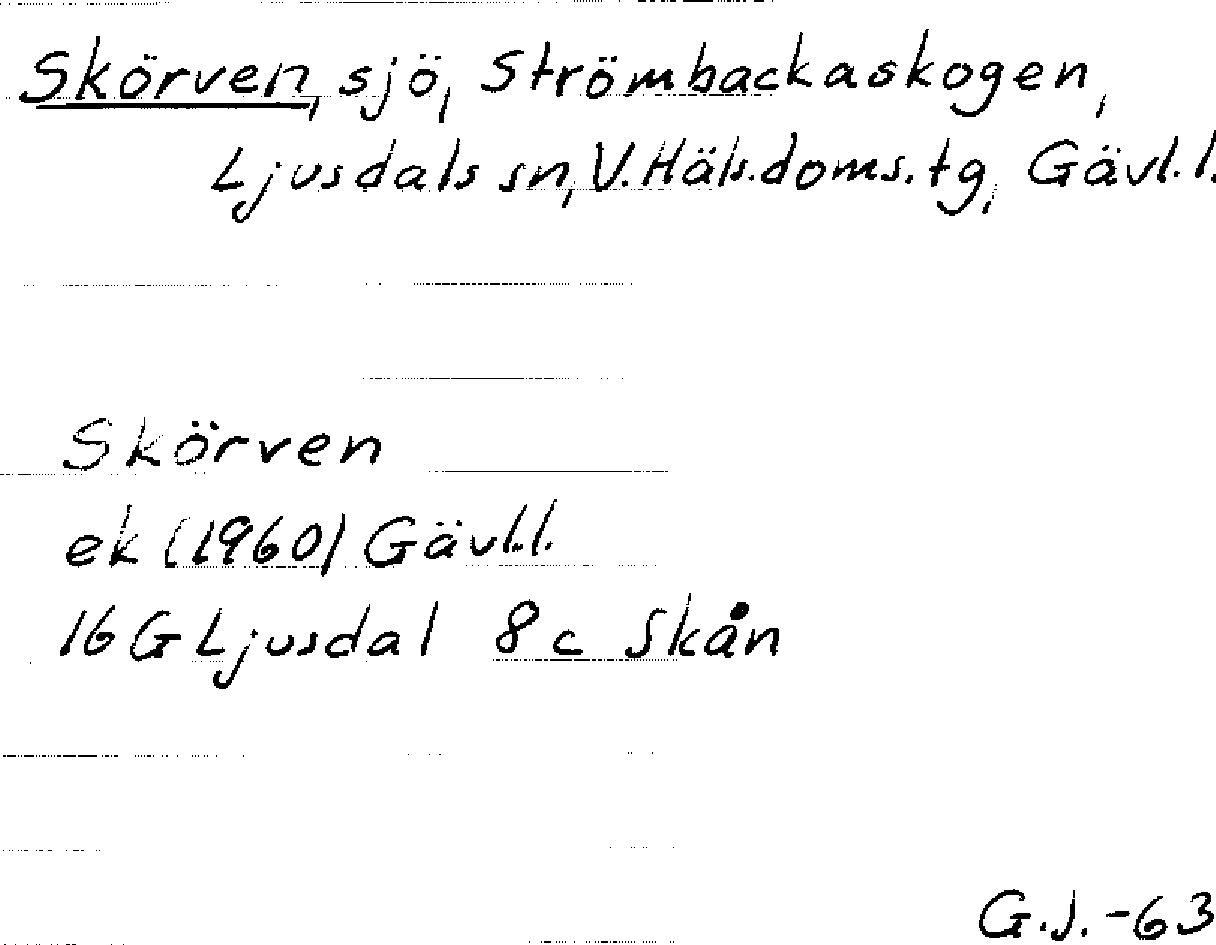 Skörven, sjö, Strömbackaskogen,
Ljusdals sn, V. Häls. doms. tg, Gävl. l.
Skörven
ek (1960) Gävl. l.
16 G Ljusdal 8 c Skån
G. J. -63